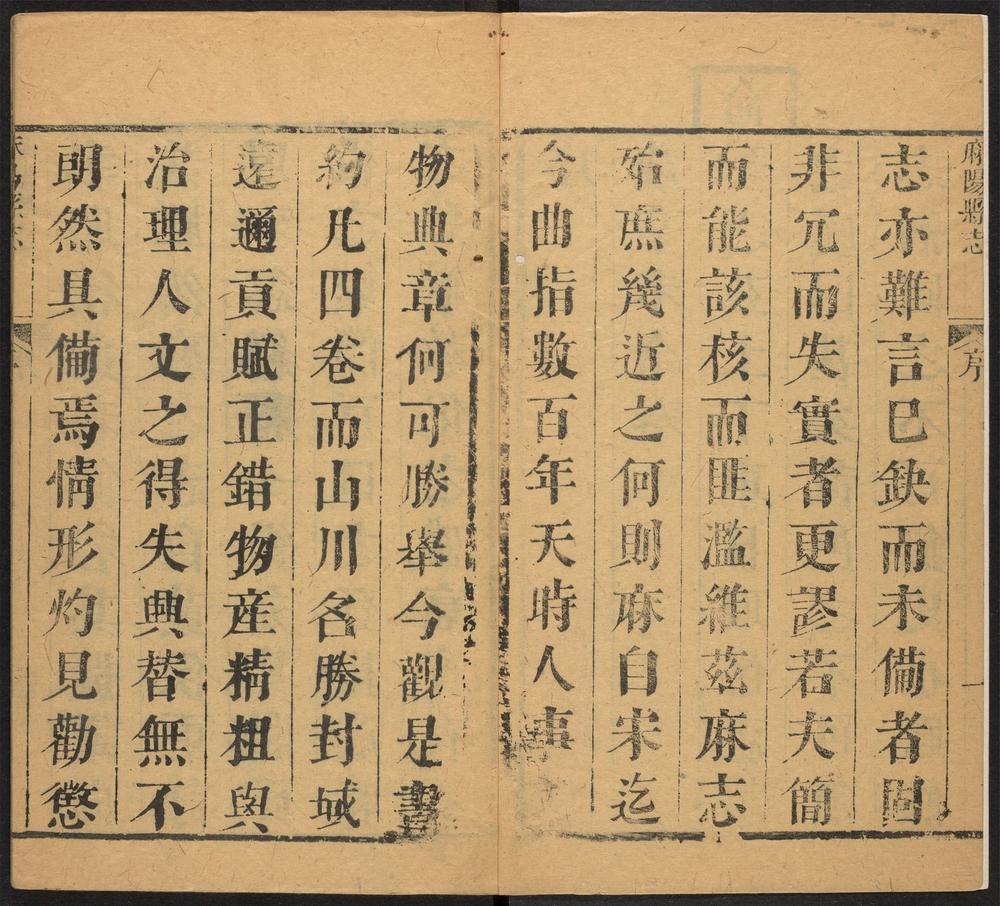 麻陽縣志
序
一
志亦難言巳缺而未備者固
非冗而失實者更謬若夫簡
而能該核而匪濫維茲麻志
殆庶幾近之何則麻自宋迄
今曲指數百年天時人事
物典章何可勝舉今觀是書
約凡四卷而山川名勝封域
遠邇貢賦正錯物産精粗與
治理人文之得失興替無不
朗然具備焉情形灼見勸懲